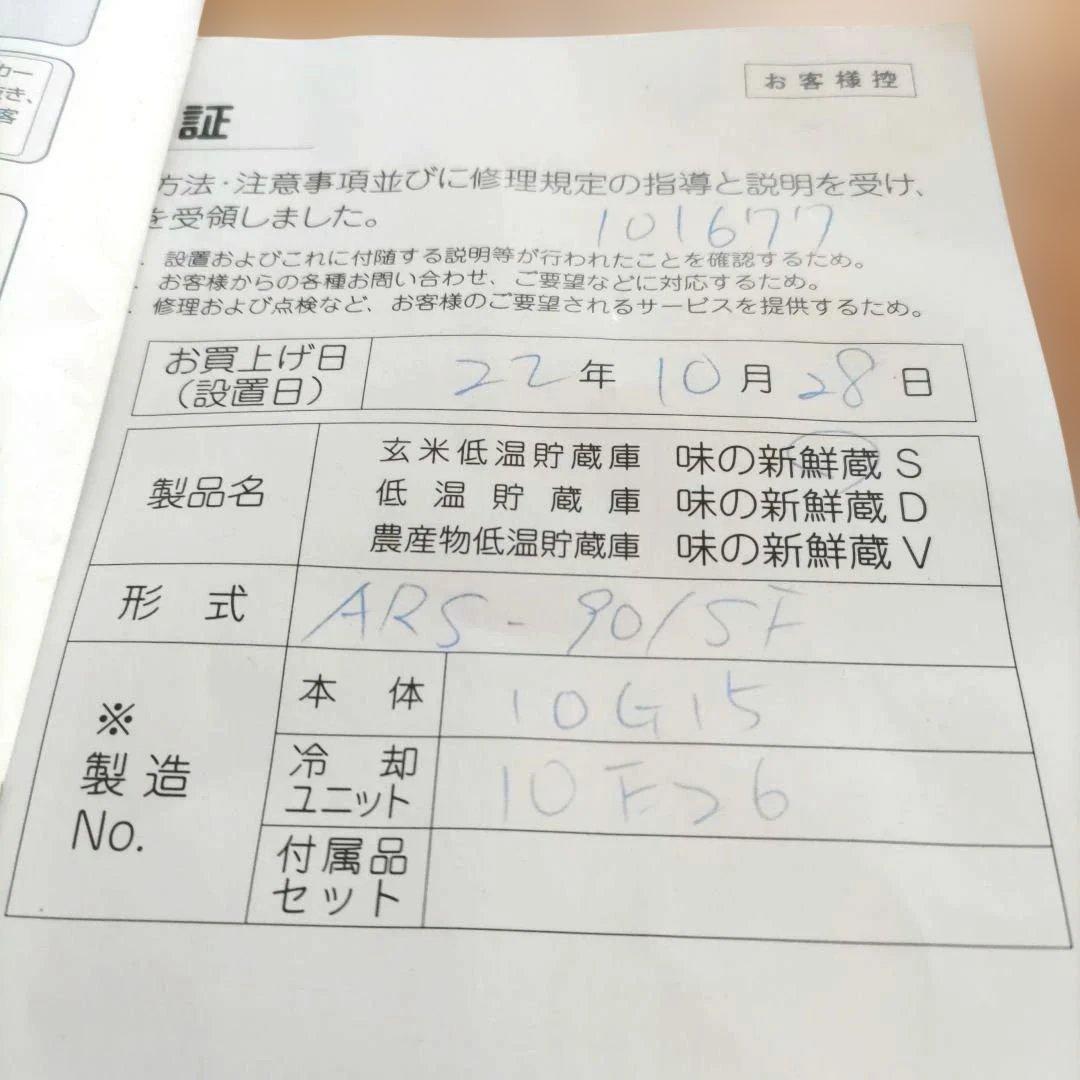 カー
客
お客様控
証
方法・注意事項並びに修理規定の指導と説明を受け、
を受領しました。
101677
設置およびこれに付随する説明等が行われたことを確認するため。
お客様からの各種お問い合わせ、ご要望などに対応するため。
修理および点検など、お客様のご要望されるサービスを提供するため。
お買上げ日
(設置日)
22年10月28日
製品名
玄米低温貯蔵庫 味の新鮮蔵 S
低温貯蔵庫 味の新鮮蔵 D
農産物低温貯蔵庫 味の新鮮蔵 V
形式 ARS-90/SF
※
製造
No.
本体 10G15
冷却
ユニット
10F26
付属品
セット